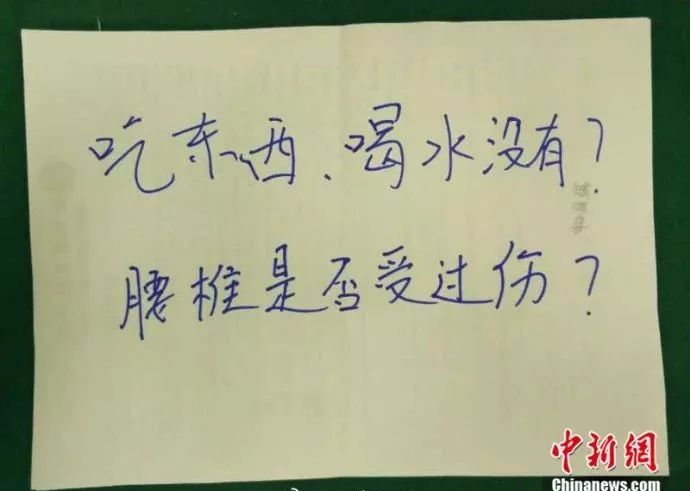 吃东西、喝水没有？
腰椎是否受过伤？
中新網
Chinanews.com